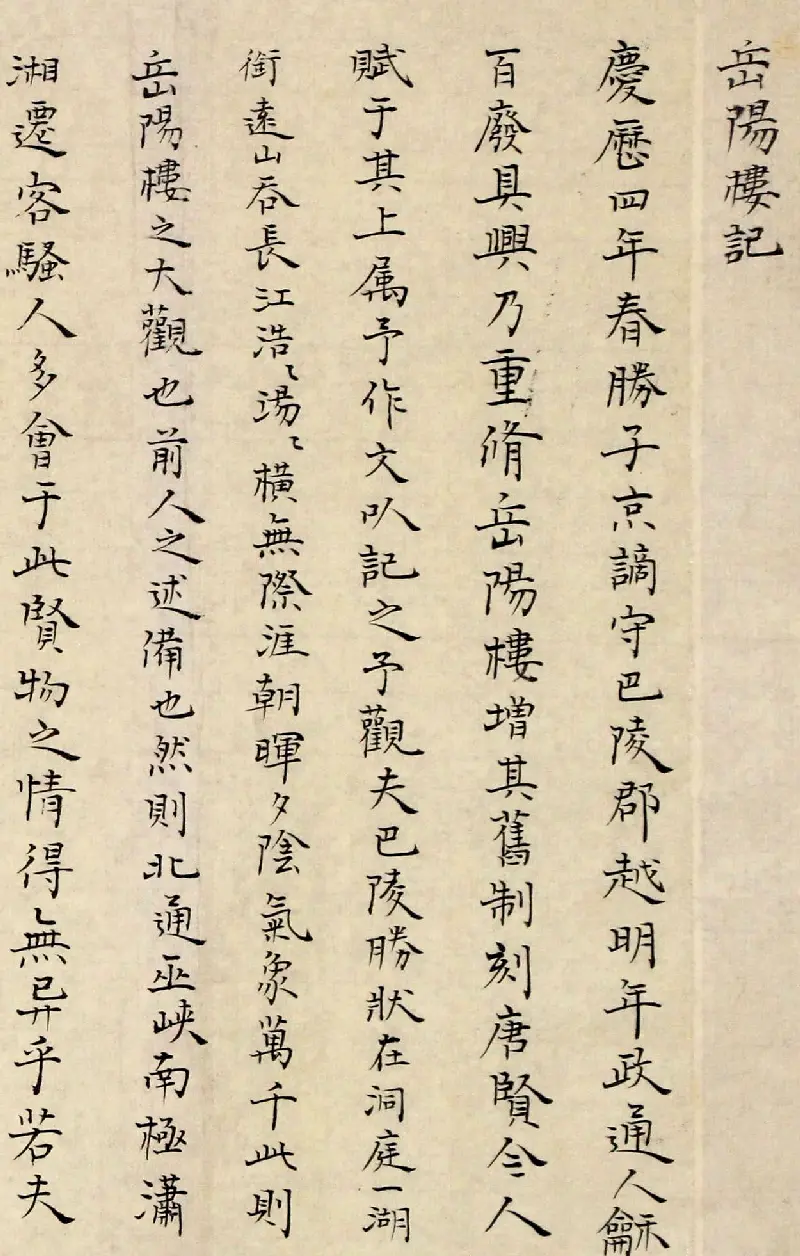 岳陽樓記
慶歷四年春勝子京謫守巴陵郡越明年政通人龢
百廢具興乃重脩岳陽樓增其舊制刻唐賢今人
賦于其上属予作文㕥記之予觀夫巴陵勝狀在洞庭一湖
銜遠山吞長江浩〻湯〻橫無際涯朝暉夕陰氣象萬千此則
岳陽樓之大觀也前人之述備也然則北通巫峽南極瀟
湘遷客騷人多會于此賢物之情得無异乎若夫